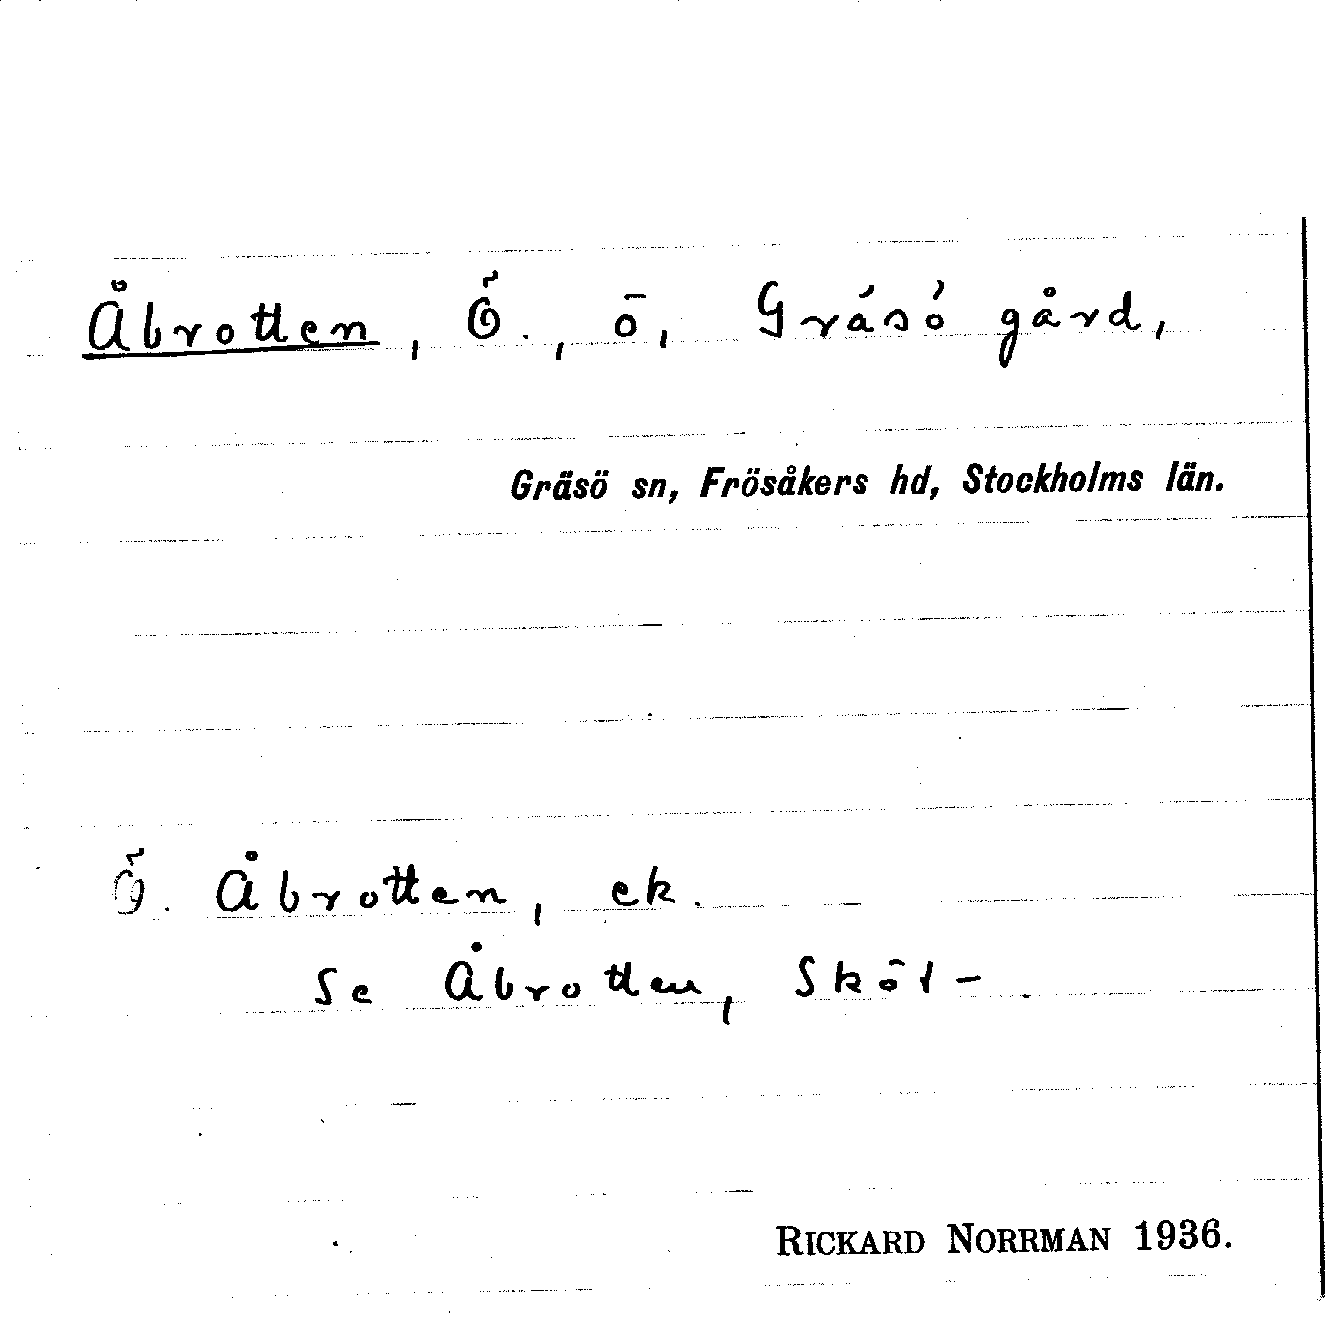 Åbrotten, Ö., ö, Gräsö gård,
Gräsö sn, Frösåkers hd, Stockholms län.
Ö. Åbrotten, ek.
Se Åbrotten, Sköt-
RICKARD NORRMAN 1936.